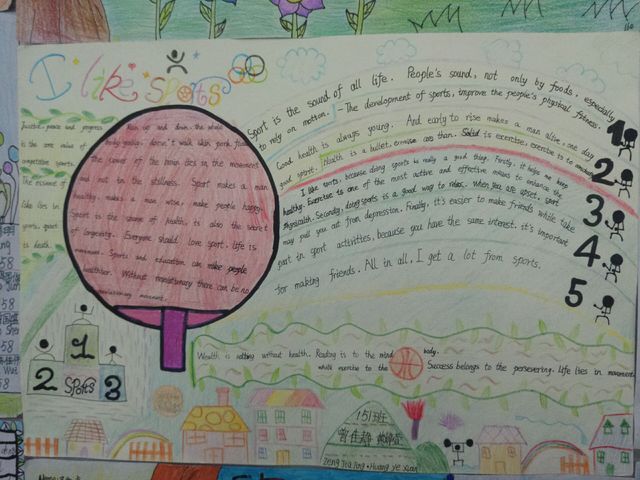 I like sports
Justice, peace and progress
is the core value of
competitive sports.
The essence of
life lies in
sports, quiet
is death.
Run up and down, the whole
body
The power of the human lies in the movement
and not in the stillness. Sport makes a man
healthy, makes a man wise, make people happy.
Sport is the source of health, is also the secret
of longevity. Everyone should love sport, life is
movement. Sports and education can make people
healthier. Without revolutionary there can be no
revolutionary movement.
Sport is the sound of all life. People's sound, not only by foods, especially
to rely on motion. -The development of sports, improve the people's physical fitness.
Good health is always young. And early to rise makes a man alive, one day
good spirit. Health is a bullet, exercise
I like sports, because doing sports is really a good thing. Firstly, it helps me keep
healthy. Exercise is one of the most active and effective means to enhance the
physicalth. Secondly, doing sports is a good way to relax. When you are upset, sport
may pull you out from depression. Finally, it's easier to make friends while take
part in sport activities, because you have the same interest. it's important
for making friends. All in all, I get a lot from sports.
1
2
3
4.
5
1
2 Sports 3
Wealth is nothing without health. Reading is to the mind
while exercise to the body.
Success belongs to the persevering. Life lies in movement
151班
Zeng Jia Jing · Huang Ye xian
58
58
58